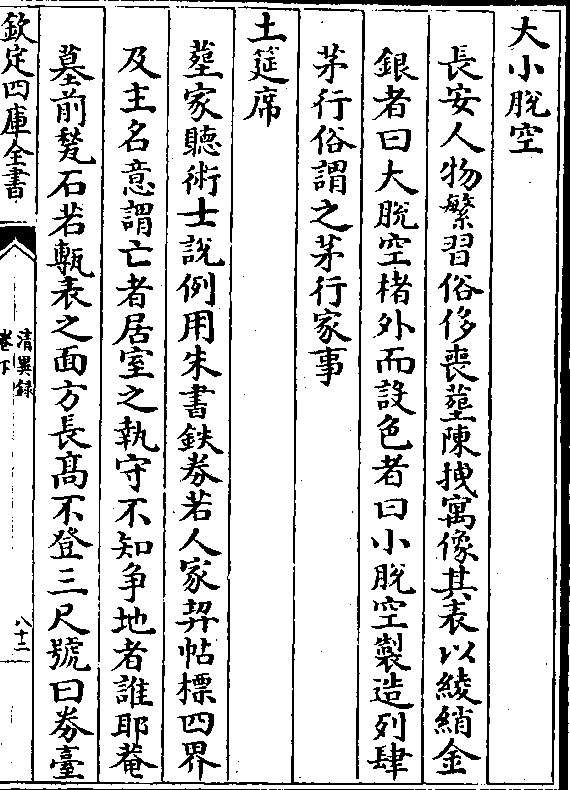 大小脫空
長安人物繁習俗侈喪塟陳拽寓像其表以綾綃金
銀者曰大脫空楮外而設色者曰小脫空製造列肆
茅行俗謂之茅行家事
土筵席
塟家聽術士說例用朱書鉄劵若人家契帖標四界
及主名意謂亡者居室之執守不知争地者誰耶菴
墓前甃石若甎表之面方長髙不登三尺號曰劵臺
欽定四庫全書
清異録
卷下
八十二